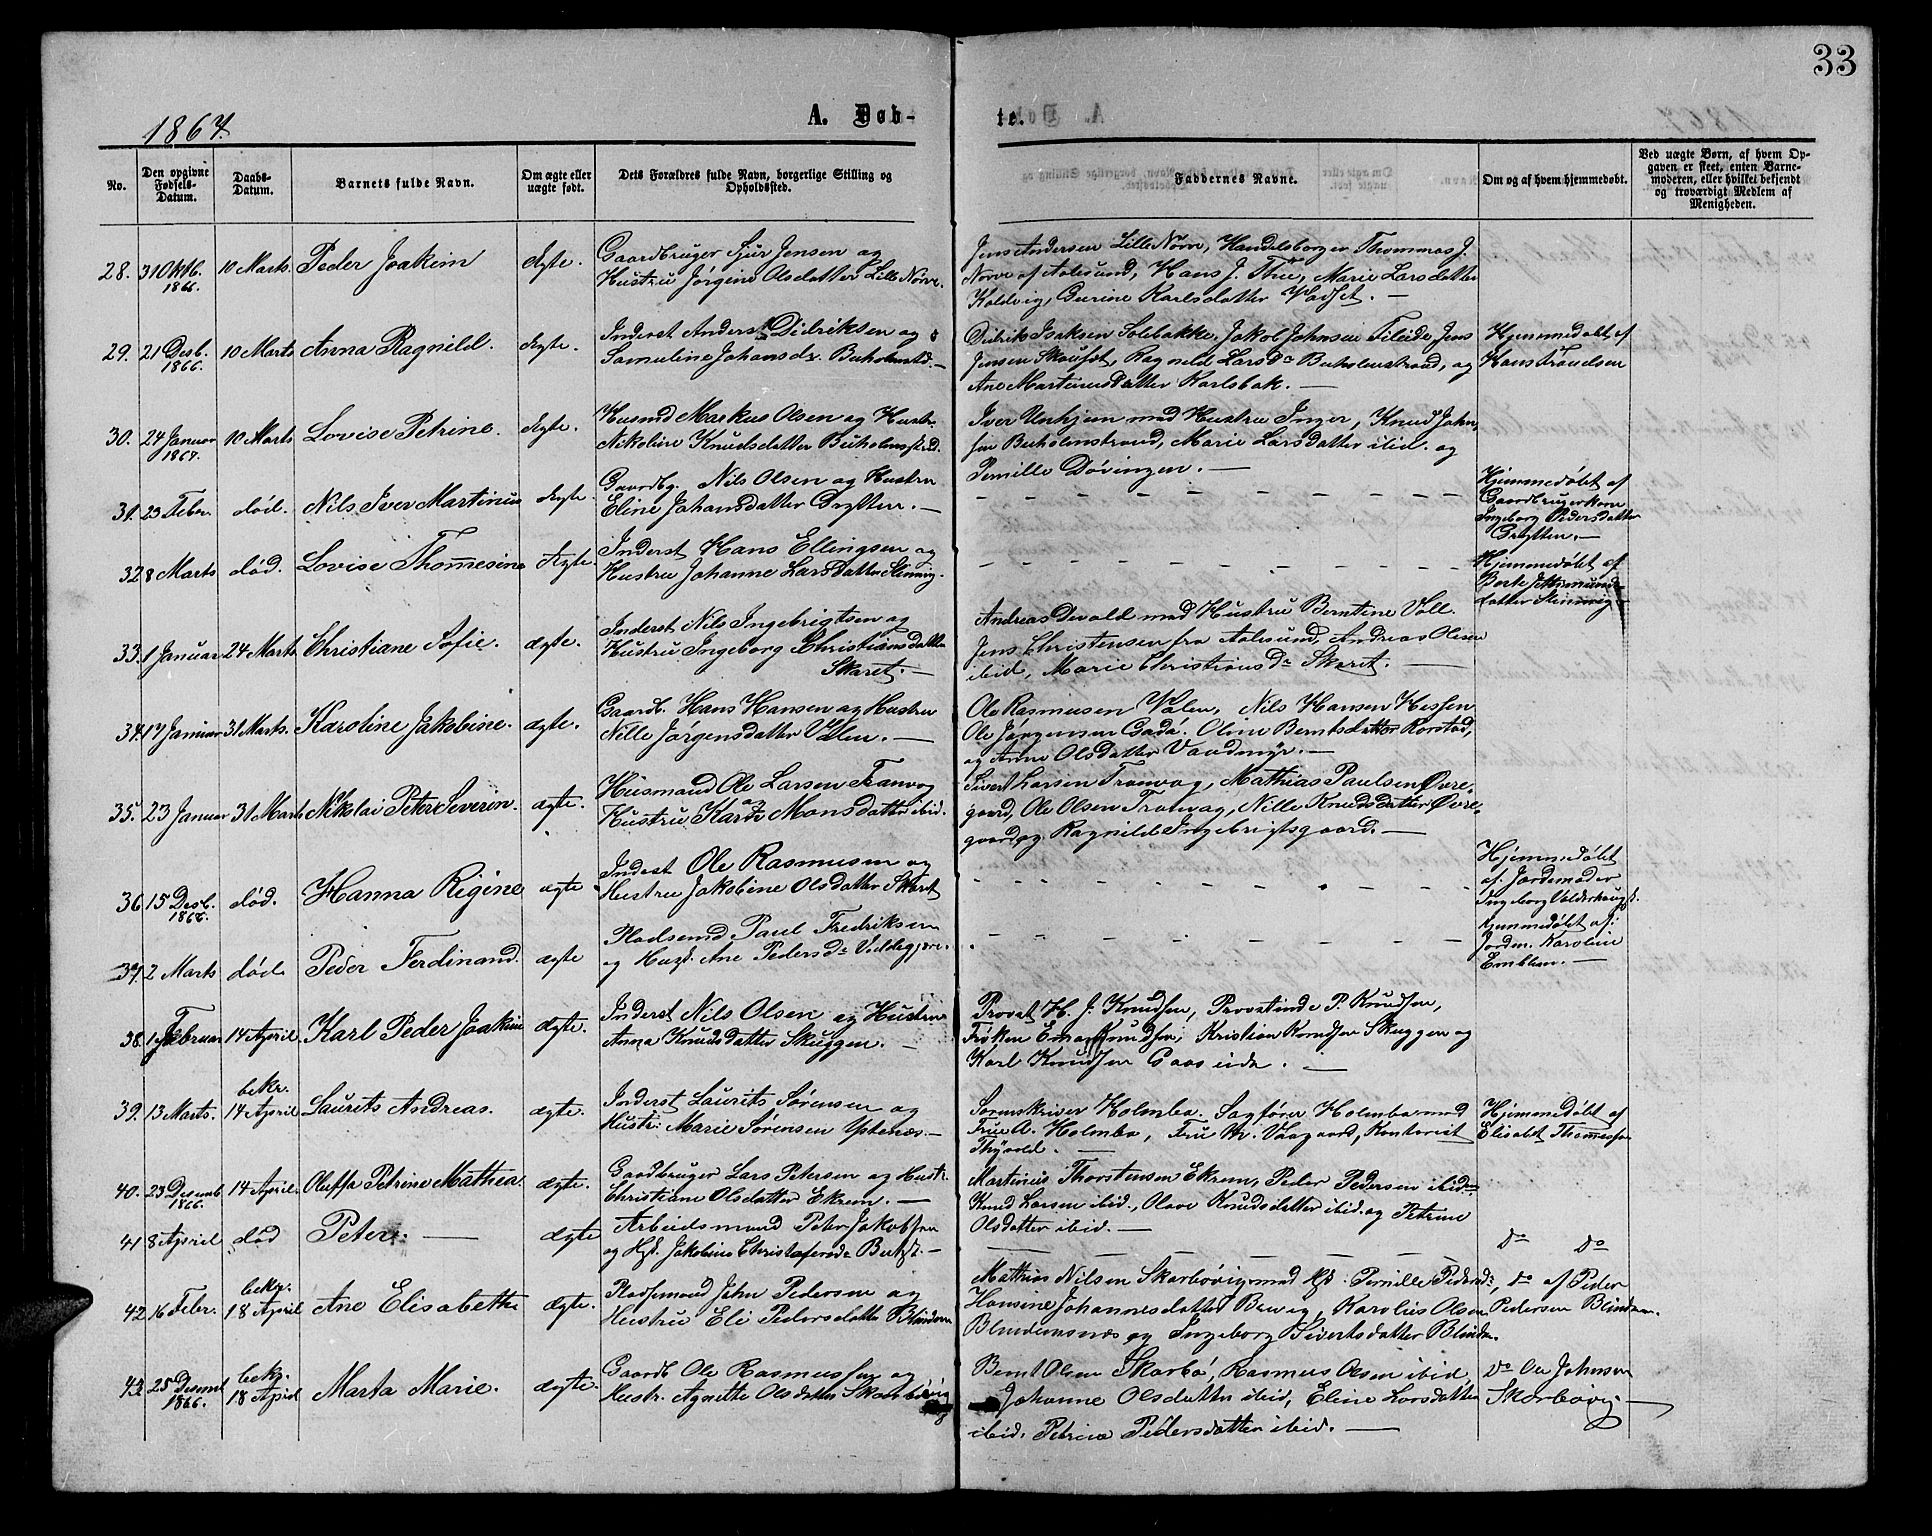 33
1867.
A. Døb-
te.
No.
Den opgivne Fødsels-Datum.
Daabs-Datum.
Barnets fulde Navn.
Om ægte eller uægte født.
Dets Forældres fulde Navn, borgerlige Stilling og Opholdssted.
Faddernes Navne.
Om og af hvem hjemmedøbt.
Ved uægte Børn, af hvem Opgaven er skeet, enten Barnemoderen, eller hvilket bekjendt og troværdigt Medlem af Menigheden.
28. 31 Oktb. 1866. 10 Marts. Peder Joakim Ægte.
Gaardbruger Sjur Jensen og
Hustru Jørgine Olsdatter Lille Nørve.
Jens Andersen Lille Nørve, Handelsborger Thommas J.
Nørve af Aalesund, Hans J. Thue, Marie Larsdatter
Kaldvig, Gurine Karlsdatter Vadset. —
29. 21 Desb. 1866. 10 Marts Anna Ragnild. Ægte.
Inderst Anders Didriksen og
Samuline Johansdr. Buholmstd. —
Didrik Isaksen Solbakke, Jakob Johnsen Fileide, Jens
Jensen Skouset, Ragnild Larsdr Buholmstrand, og
Ane Martinusdatter Karlsbak. —
Hjemmedøbt af
Hans Troudsen
30. 24 Januar 1867. 10 Marts Lovise Petrine. Ægte.
Husmd Markus Olsen og Hustr.
Nikoline Knudsdatter Buholmstrd.
Iver Urkjen med Hustru Inger, Knud John-
sen Buholmstrand, Marie Larsdatter ibid. og
Pernille Døvingen. —
31. 23 Febr. død. Nils Iver Martinus Ægte.
Gaardbg. Nils Olsen og Hustru
Eline Johansdatter Drytten. —
Hjemmedøbt af
Gaardbrugerkone
Ingeborg Pedersdatter
Drytten. —
32 8 Marts død. Lovise Thomesine Ægte.
Inderst Hans Ellingsen og
Hustru Johanne Larsdatter Slinning.
Hjemmedøbt af
Berte
datter Slinning. —
33. 1 Januar 24 Marts Christiane Sofie. ægte.
Inderst Nils Ingebrigtsen og
Hustru Ingeborg Christiansdatter
Skaret. —
Andreas Devold med Hustru Berntine Voll.
Jens Christensen fra Aalesund, Andreas Olsen
ibid, Marie Christiansdr Skaret. —
34. 17 Januar 31 Marts. Karoline Jakobine. ægte.
Gaardb. Hans Hansen og Hustru
Nille Jørgensdatter Valen. —
Ole Rasmusen Valen, Nils Hansen Hessen
Ole Jørgensen Gada. Oline Berntsdatter Korstad,
og Anne Olsdatter Vandmyr. —
35. 23 Januar 31 Marts Nikolai Peter Severin. ægte.
Husmand Ole Larsen Tranvog
Hustru Karen Monsdatter ibid.
Sivert Larsen Tranvag, Mathias Paulsen Øvre-
gaard, Ole Olsen Tranvag, Nille Knudsdatter Øvre-
gaard, og Ragnilde Ingebrigtsgaard. —
36 15 Desb. 1866. død. Hanna Rigine ægte
Inderst Ole Rasmusen og
Hustru Jakobine Olsdatter Skaret
Hjemmedøbt
af Jordemoder
Ingeborg Valderhaugst.
37. 2 Marts død. Peder Ferdinand. ægte
Pladsemd Paul Fredriksen
og Hust. Ane Pedersdr Veddegjære.
Hjemmedøbt af
Jordm. Karoline
Emblem. —
38. 1 Februar 14 April. Karl Peder Joakim ægte.
Inderst Nils Olsen og Hustru
Anna Knudsdatter Skuggen. —
Provst H. J. Knudsen, Provstinde P. Knudsen,
Frøken Ema Knudsen, Kristian Knudsen Skuggen og
Karl Knudsen Gaaseide. —
39. 13 Marts. bekr. 14 April Laurits Andreas. ægte.
Inderst Laurits Sørensen og
Hustr. Marie Sørensen Ystenæs. —
Sorenskriver Holmbo. Sagfører Holmbo med
Frue A. Holmbo, Fru Kr. Vaagaard, Kontorist
Thyvold. —
Hjemmedøbt af
Elisabt Thomassen
40. 23 Desemb 1866. 14 April. Oluffa Petrine Mathea. ægte.
Gaardbruger Lars Petersen og Hustr.
Christiane Olsdatter Ekrem. —
Martinus Thorstensen Ekrem, Peder Pedersen ibidem
Knud Larsen ibid., Olave Knudsdatter ibid. og Petrine
Olsdatter ibid. —
41 8 April død Peter. — ægte
Arbeidsmand Peter Jakobsen
og Hst. Jakobine Christofersdr Buhst. —
do do
42 16 Febr. bekr. 18 April Ane Elisabeth ægte.
Pladsemand John Pedersen og
Hustru Eli Pedersdatter Blindem
Mathias Nilsen Skarbøvig med Hst. Pernille Pedersdr.,
Hansine Johannesdatter Barvig, Karolus Olsen
Blindemsnæs og Ingeborg Sivertsdatter Blinde.
do af Peder
Pedersen Blindem.
43. 25 Desembr 1866. bekr. 18 April Marta Marie. ægte.
Gaardb Ole Rasmussen og
Hustr. Agnette Olsdatter Skarbøvig
Bernt Olsen Skarbø, Rasmus Olsen ibid,
Johanne Olsdatter ibid, Eline Larsdatter
ibid. Petrine Pedersdatter ibid. —
do Ole Johnsen
Skarbøvig —